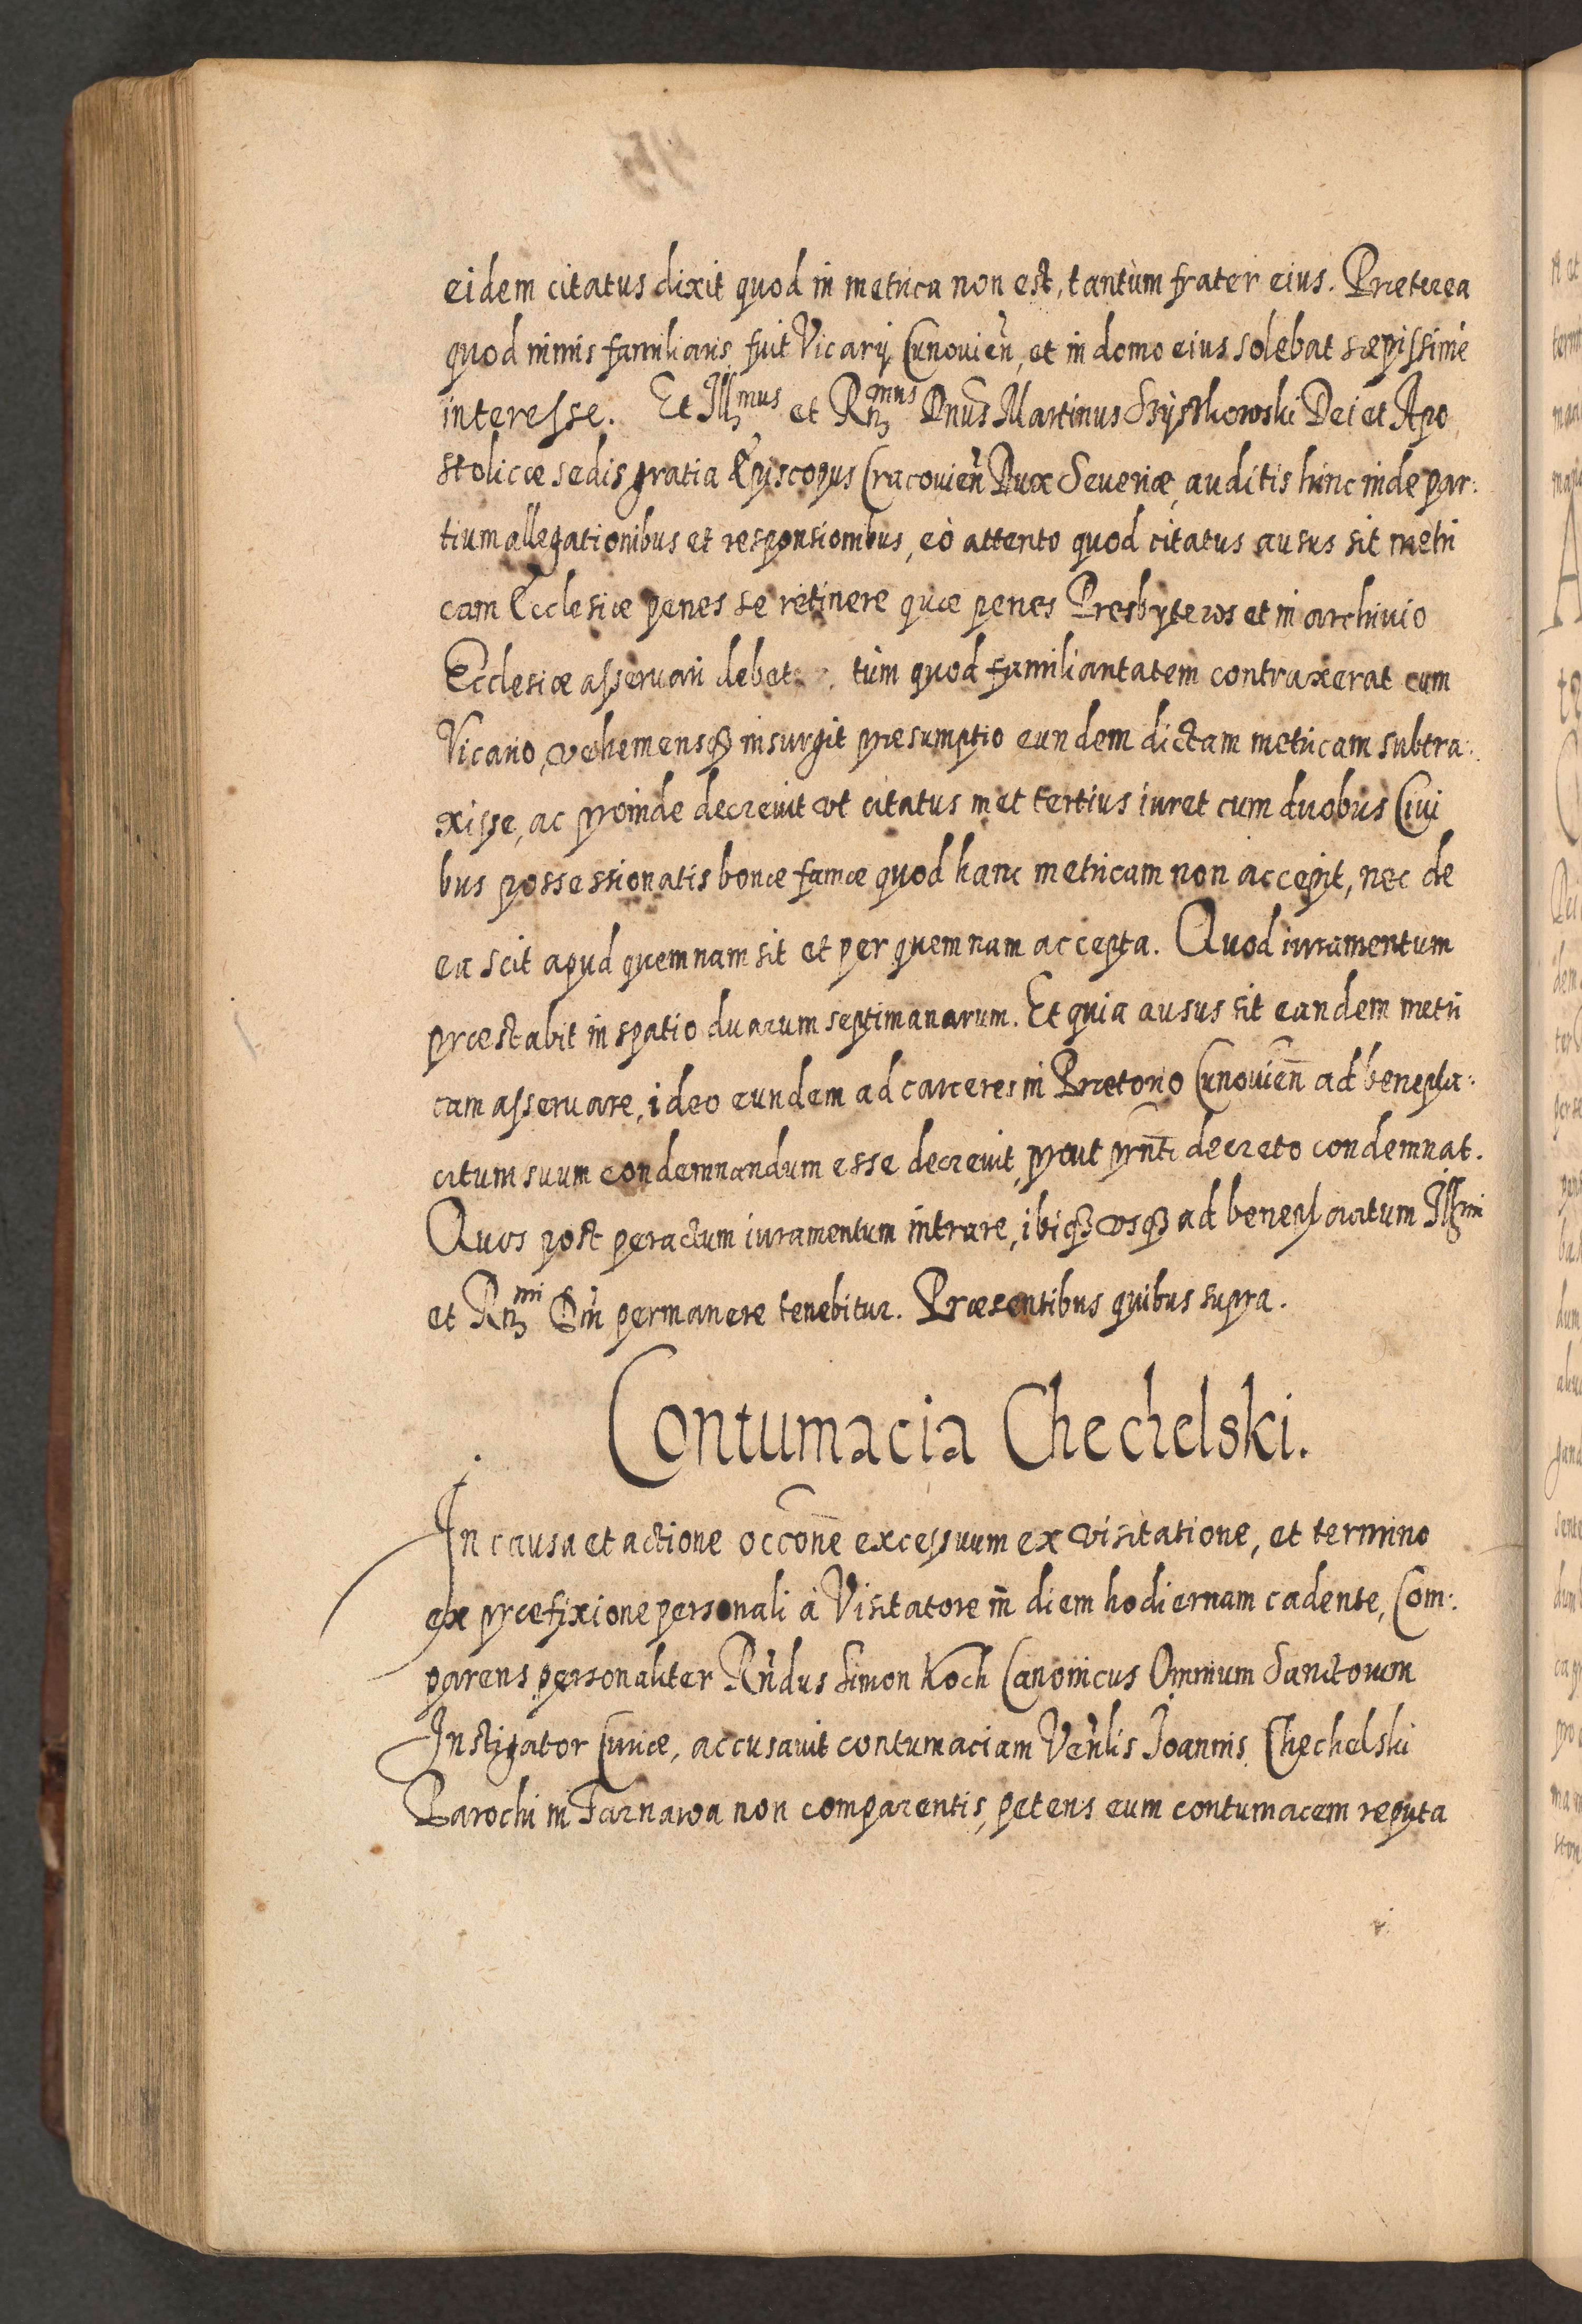 eidem citatus dixit quod in metrica non est, tantùm frater eius. Præterea
quod nimis familiaris fuit Vicarij Cunouien̄, et in domo eius solebat sæpissimè
interesse. Et Illmus et Rmus Dn̄us Martinus Szyszkowski Dei et Apo
stolicæ sedis gratia Episcopus Cracouien̄ Dux Seueriæ, auditis hinc inde par:
tium allegationibus et responsionibus, eò attento quod citatus ausus sit metri
cam Ecclesiæ penes se retinere quæ penes Presbyteros et in archiuio
Ecclesiæ asseruari debet, tùm quod familiaritatem contraxerat cum
Vicario, vehemensq3 insurgit præsumptio eundem dictam metricam subtra:
xisse, ac proinde decreuit vt citatus met tertius iuret cum duobus Ciui
bus possessionatis bonæ famæ quod hanc metricam non accepit, nec de
ea scit apud quemnam sit et per quemnam accepta. Quod iuramentum
præstabit in spatio duarum septimanarum. Et quia ausus sit eandem metri
cam asseruare, ideo eundem ad carceres in Prætorio Cunouien̄ ad benepla:
citum suum condemnandum esse decreuit, prout prn̄ti decreto condemnat.
Quos post peractum iuramentum intrare, ibiq3 vsq3 ad beneplacitum Illmi
et Rmi Dn̄i permanere tenebitur. Præsentibus quibus supra.
Contumacia Chechelski.
In causa et actione occōne excessuum ex visitatione, et termino
ex præfixione personali à Visitatore in diem hodiernam cadente, Com:
parens personaliter Rn̄dus Simon Koch Canonicus Omnium Sanctorum
Instigator Curiæ, accusauit contumaciam Ven̄lis Joannis Chechelski
Parochi in Tarnawa non comparentis, petens eum contumacem reputa